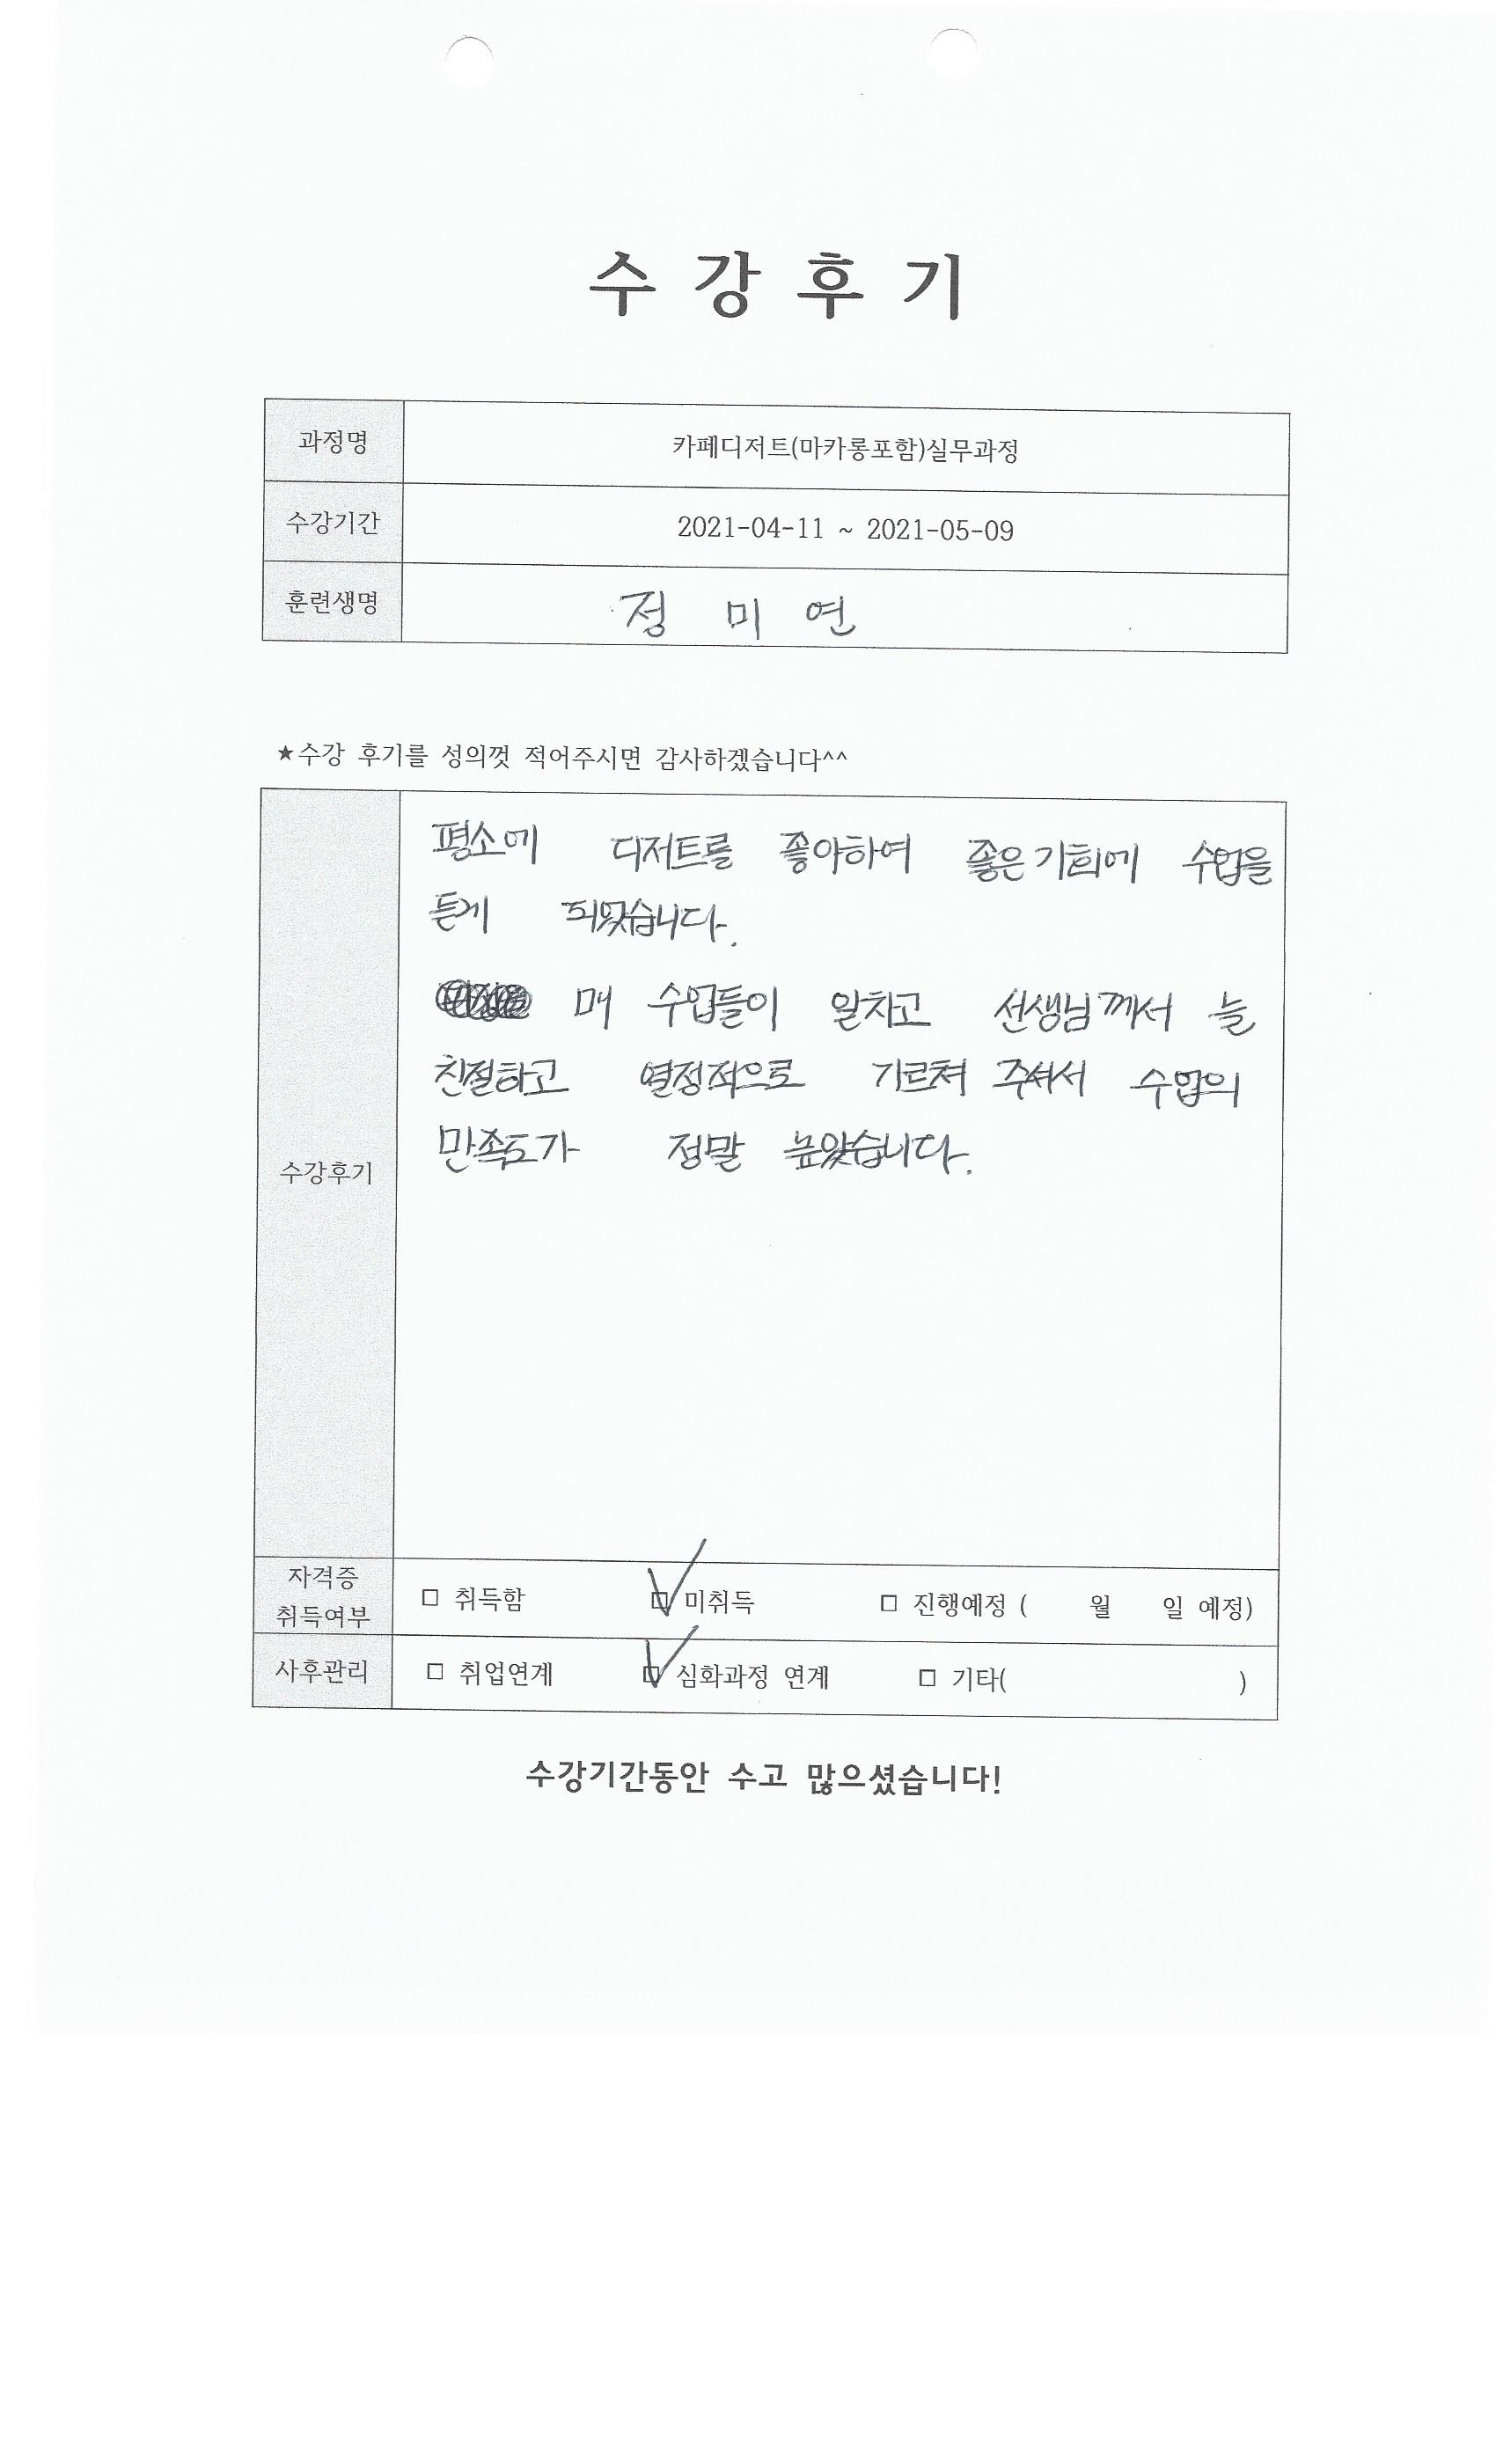 수 강 후 기
과정명 카페디저트(마카롱포함)실무과정
수강기간 2021-04-11 ~ 2021-05-09
훈련생명 정 미 연
★수강 후기를 성의껏 적어주시면 감사하겠습니다^^
수강후기
평소에 디저트를 좋아하여 좋은기회에 수업을
듣게 되었습니다.
매 수업들이 알차고 선생님께서 늘
친절하고 열정적으로 가르쳐 주셔서 수업의
만족도가 정말 높았습니다.
자격증
취득여부 □ 취득함 ☑ 미취득 □ 진행예정 ( 월 일 예정)
사후관리 □ 취업연계 ☑ 심화과정 연계 □ 기타( )
수강기간동안 수고 많으셨습니다!